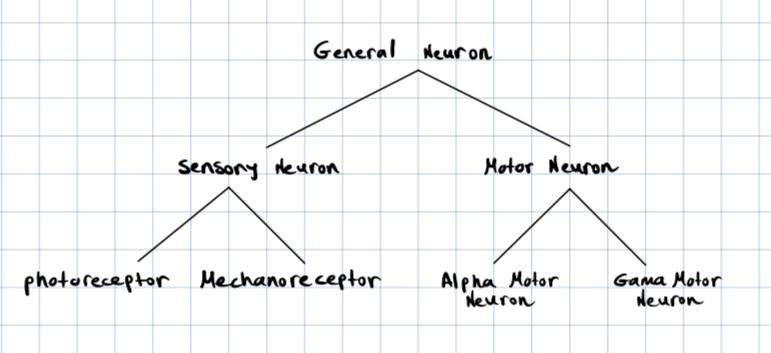 General Neuron
Sensory Neuron Motor Neuron
photoreceptor Mechanoreceptor Alpha Motor Gama Motor
Neuron Neuron